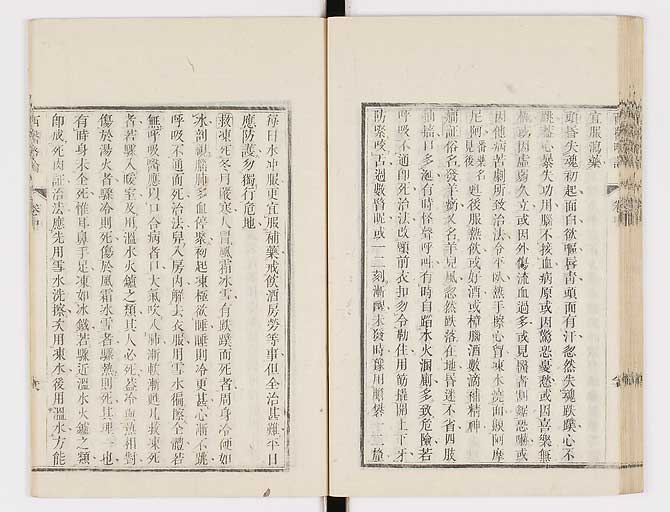 宜服瀉藥
頭昏失魂初起面白欲嘔唇青頭面有汗忽然失魂跌蹼心不
跳蓋心暴失功用腦不接血病原或因驚恐憂愁或因喜樂無
或因虛弱久立或因外傷流血過多或見醫者割症恐嚇或
因他病苦劇所致治法令平臥熱手擦心胃凍水澆面嗅阿摩
尼阿番藥名見後甦後服熱飲或好酒或樟腦酒數滴補精神
癇証俗名發羊癇又名羊兒風忽然跌落在地昏迷不省四肢
搐搦口多泡有時怪聲呼叫有時自蹈水火溷厠多致危險若
呼吸不通即死治法攻頸前衣扣勿令勒住用筋撬開上下牙
防緊咬舌過數分時或一二刻漸醒未發時預用膽礬一二釐
每日水冲服更宜服補藥戒飲酒房勞等事但全治甚難平日
應防護勿獨行危地
救凍死冬月嚴寒人冒風霜冰雪有跌蹼而死者周身冷硬如
冰剖視臟腑多血停聚初起凍極欲睡睡則冷更甚心漸不跳
呼吸不通而死治法舁入房內解去衣服用雪水徧擦全體若
無呼吸醫應以口合病者口大氣吹入肺漸軟漸甦凡救凍死
者若驟入暖室及用溫水火鑪之類其人必死蓋冷血熱相對
傷於湯火者驟冷則死傷於風霜冰雪者驟熱則死其理一也
有時身未全死惟耳鼻手足凍如冰鐵若驟近溫水火鑪之類
即成死肉証治法應先用雪水洗擦次用凍水後用溫水方能
西醫略論
卷中